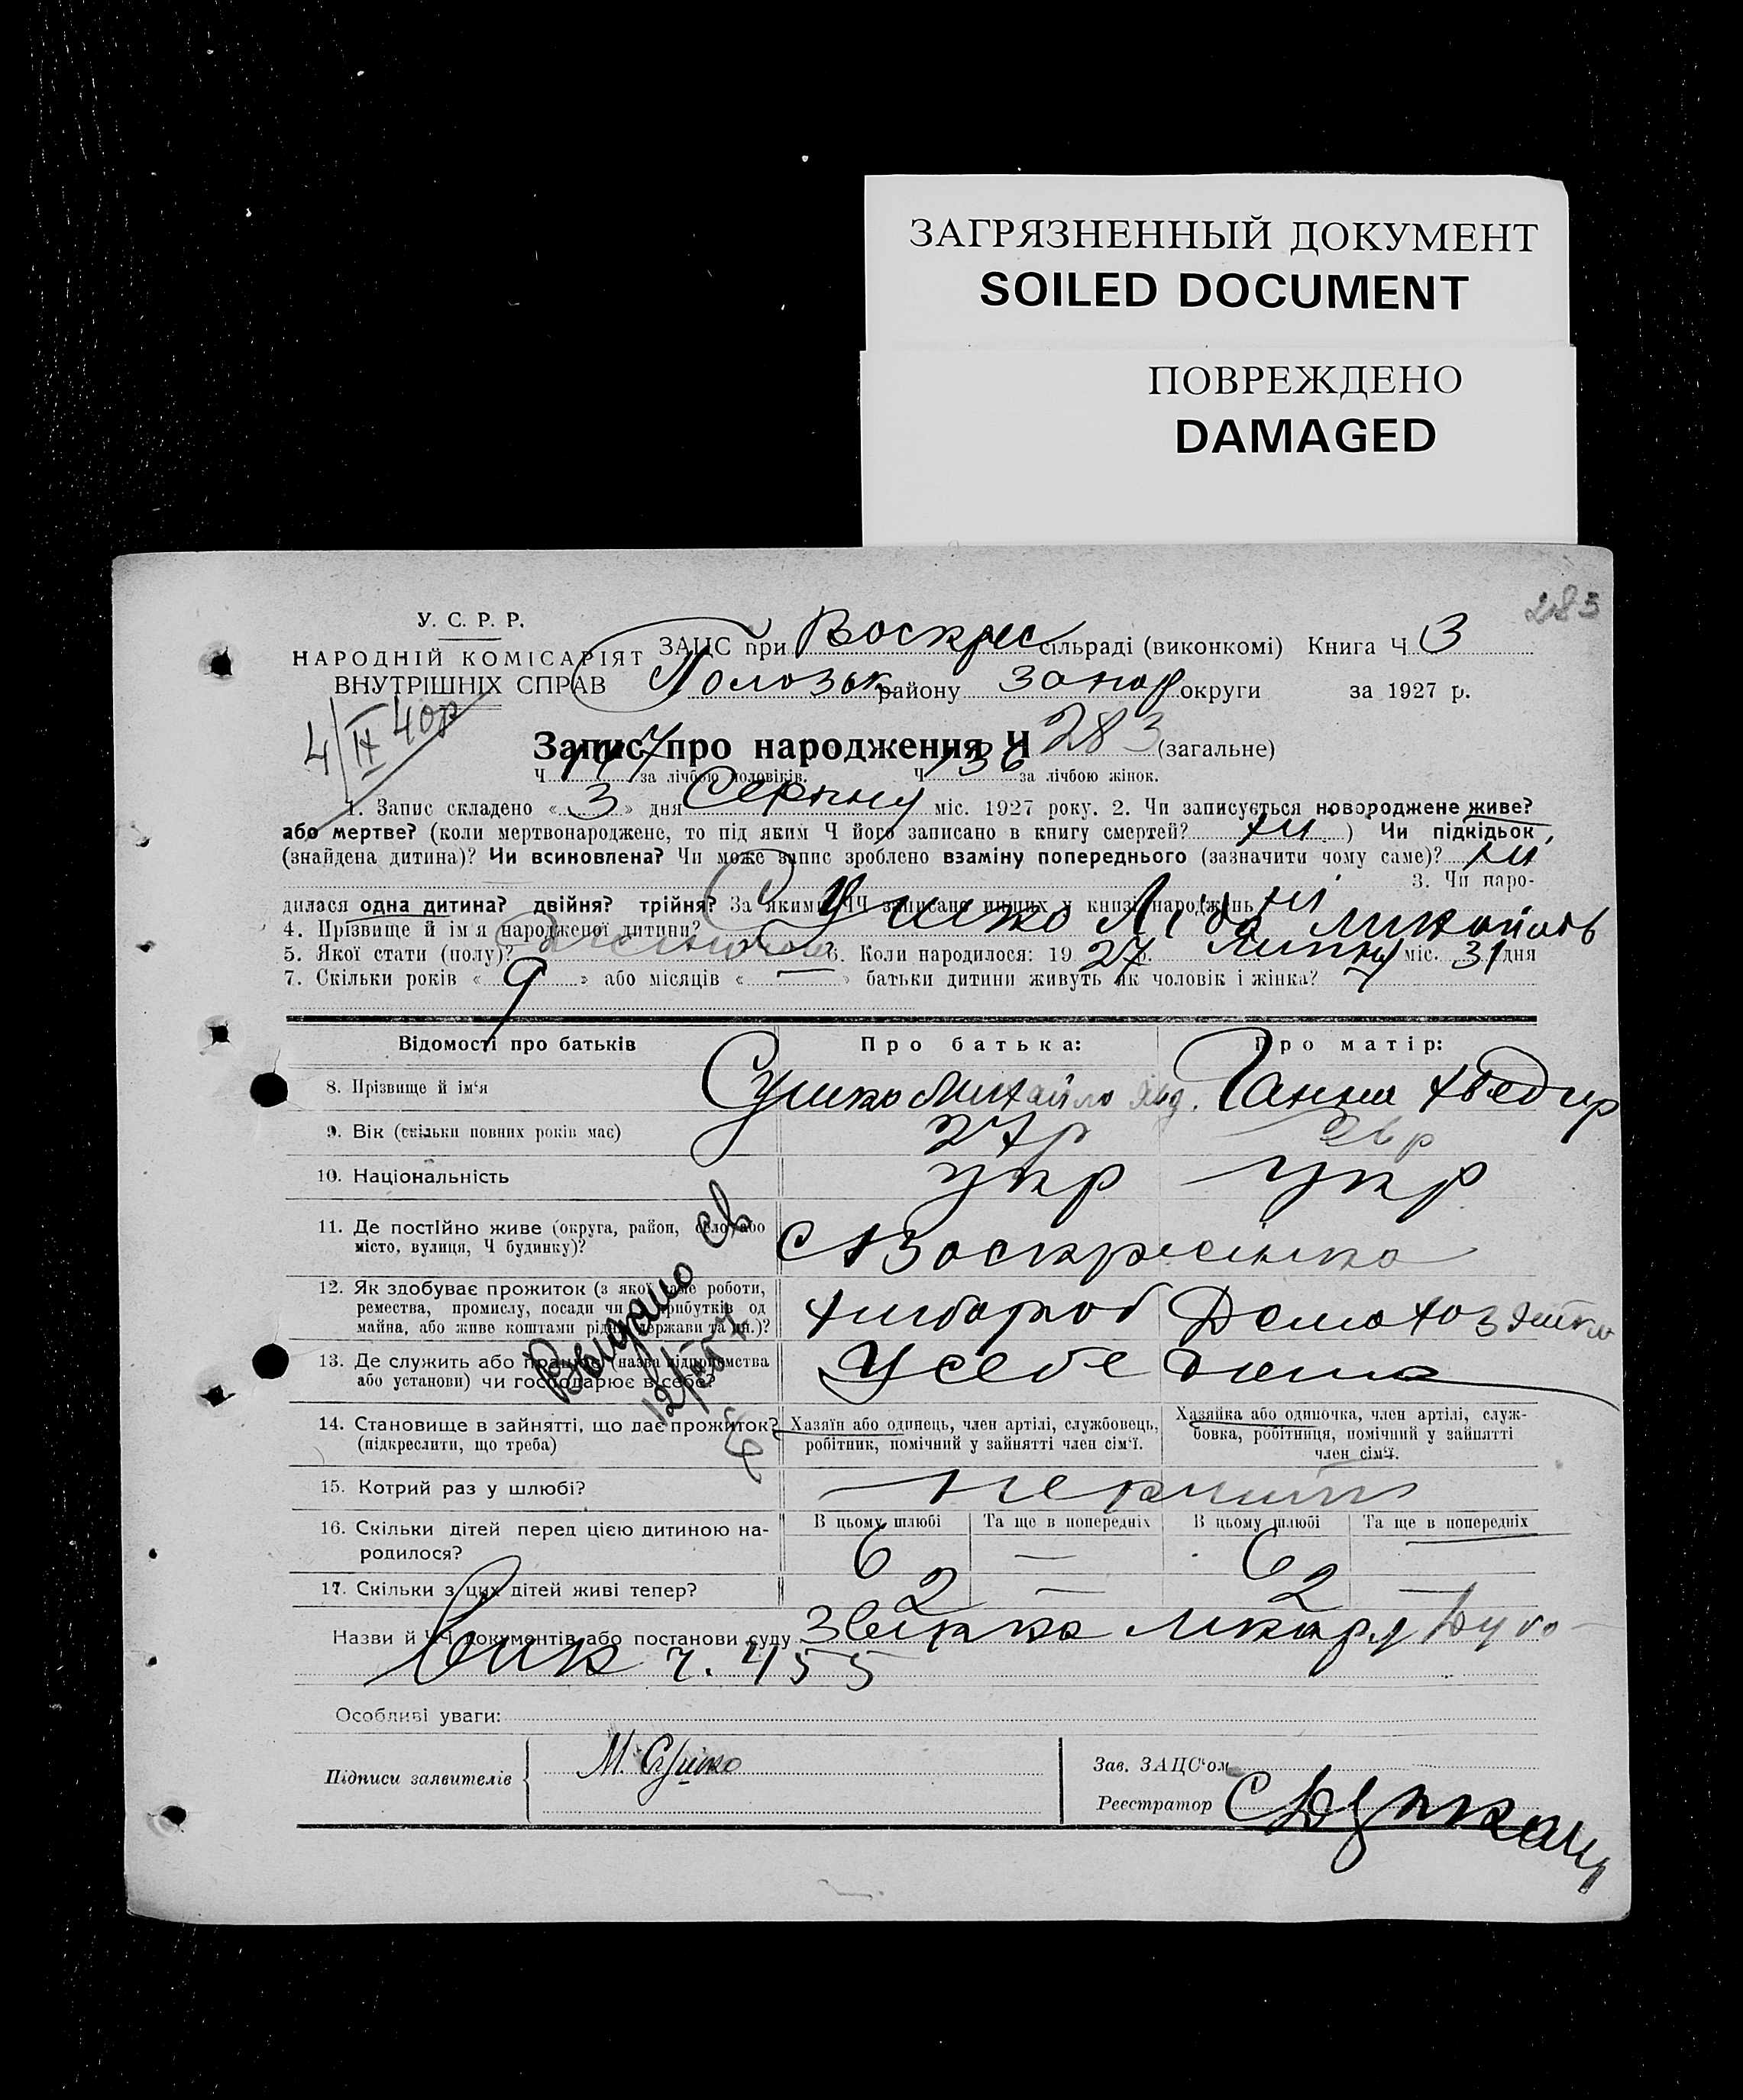 ЗАГРЯЗНЕННЫЙ ДОКУМЕНТ
SOILED DOCUMENT
ПОВРЕЖДЕНО
DAMAGED
283
У. С. Р. Р.
НАРОДНІЙ КОМІСАРІЯТ
ВНУТРІШНІХ СПРАВ
ЗАЦС при Воскрес сільраді (виконкомі) Книга Ч 3
Полозьк району Запор округи за 1927 р.
4/II 40р
Запис про народження Ч 283 (загальне)
Ч 147 за лічбою чоловіків. Ч 136 за лічбою жінок.
1. Запис складено « 3 » дня Серпня міс. 1927 року. 2. Чи записується новороджене живе?
або мертве? (коли мертвонароджене, то під яким Ч його записано в книгу смертей? ні ) Чи підкідьок,
(знайдена дитина)? Чи всиновлена? Чи може запис зроблено взаміну попереднього (зазначити чому саме)? ні
3. Чи наро-
дилася одна дитина? двійня? трійня? За якими ЧЧ записано инших у книзі народжень ні
4. Прізвище й ім'я народженої дитини? Сушко Ліда Михайлов
5. Якої стати (полу)? 6. Коли народилося: 19 27 р. Липня міс. 31 дня
7. Скільки років « 9 » або місяців « — » батьки дитини живуть як чоловік і жінка?
Відомості про батьків Про батька: Про матір:
8. Прізвище й ім'я Сушко Михайло Ганна Хведир
9. Вік (скільки повних років має) 27 р 26 р
10. Національність укр укр
11. Де постійно живе (округа, район, село, або
місто, вулиця, Ч будинку)? С Воскресінка
12. Як здобуває прожиток (з якої саме роботи,
ремества, промислу, посади чи прибутків од
майна, або живе коштами рідні, держави та ин.)? хлибороб Домохозяйка
13. Де служить або працює (назва підприємства
або установи) чи господарює в себе? У себе дома
Выдано св
14. Становище в зайнятті, що дає прожиток?
(підкреслити, що треба)
Хазяїн або одинець, член артілі, службовець,
робітник, помічний у зайнятті член сім'ї.
Хазяйка або одиночка, член артілі, служ-
бовка, робітниця, помічний у зайнятті
член сім'ї.
15. Котрий раз у шлюбі? первий
16. Скільки дітей перед цією дитиною на-
родилося?
В цьому шлюбі Та ще в попередніх В цьому шлюбі Та ще в попередніх
6 — 6 —
17. Скільки з цих дітей живі тепер? 2 — 2 —
Назви й ЧЧ документів або постанови суду
ч. 455
Особливі уваги:
Підписи заявителів М. Сушко
Зав. ЗАЦС'ом
Реєстратор